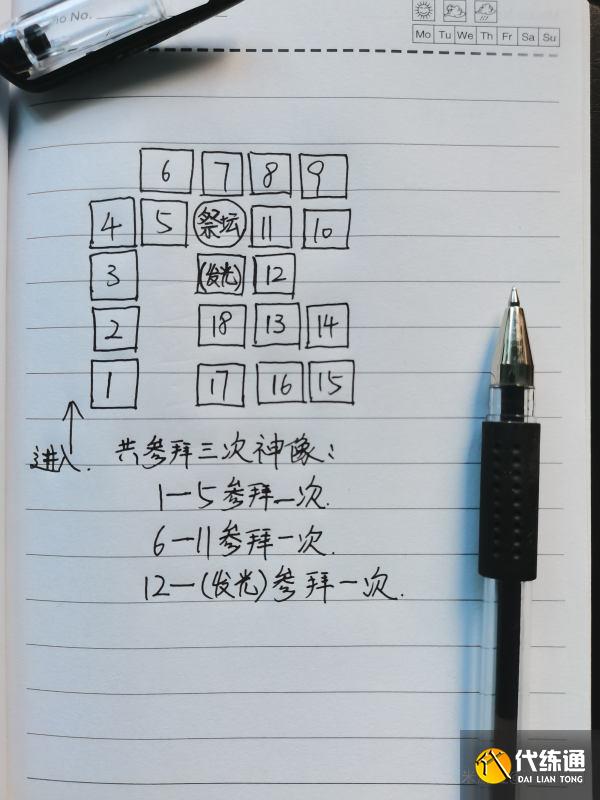 No.
Mo Tu We Th Fr Sa Su
6 7 8 9
4 5 祭坛 11 10
3 (发光) 12
2 18 13 14
1 17 16 15
进入.
共参拜三次神像:
1—5参拜一次.
6—11参拜一次.
12—(发光)参拜一次.
代练通
DAI LIAN TONG